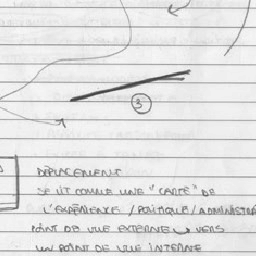 3
DÉPLACEMENT
SE LIT COMME UNE "CARTE" DE
L'EXPÉRIENCE / POLITIQUE / ADMINISTRA
POINT DE VUE EXTERNE → VERS
UN POINT DE VUE INTERNE